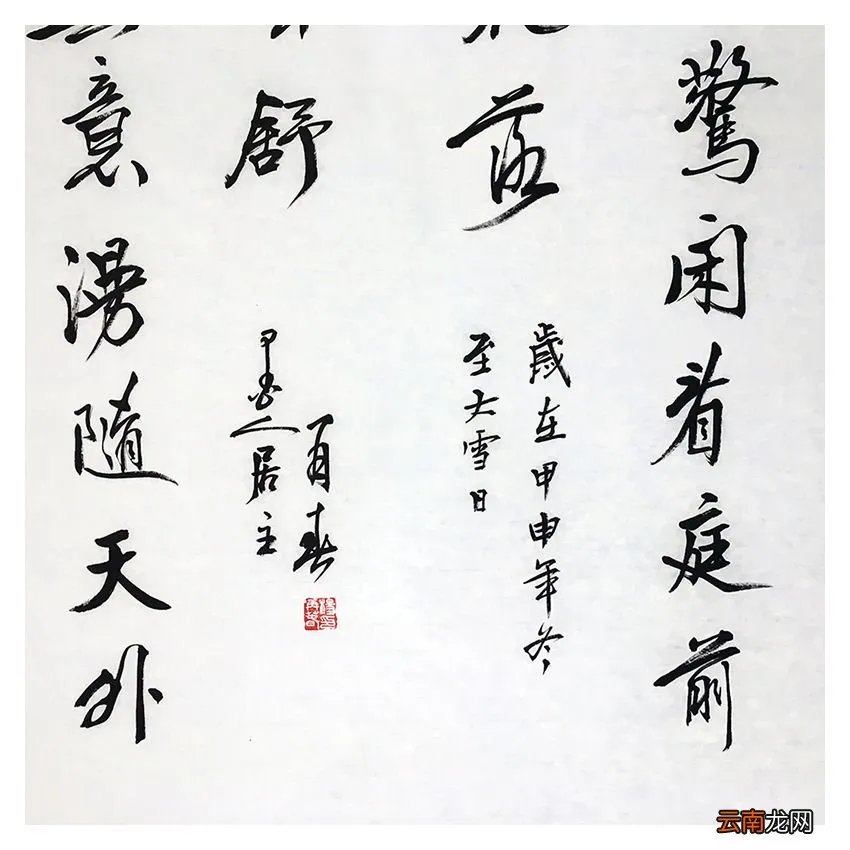 驚闲看庭前
落
歲在甲申年冬
至大雪日
舒
再春
人居主
意漫隨天外
云南龙网